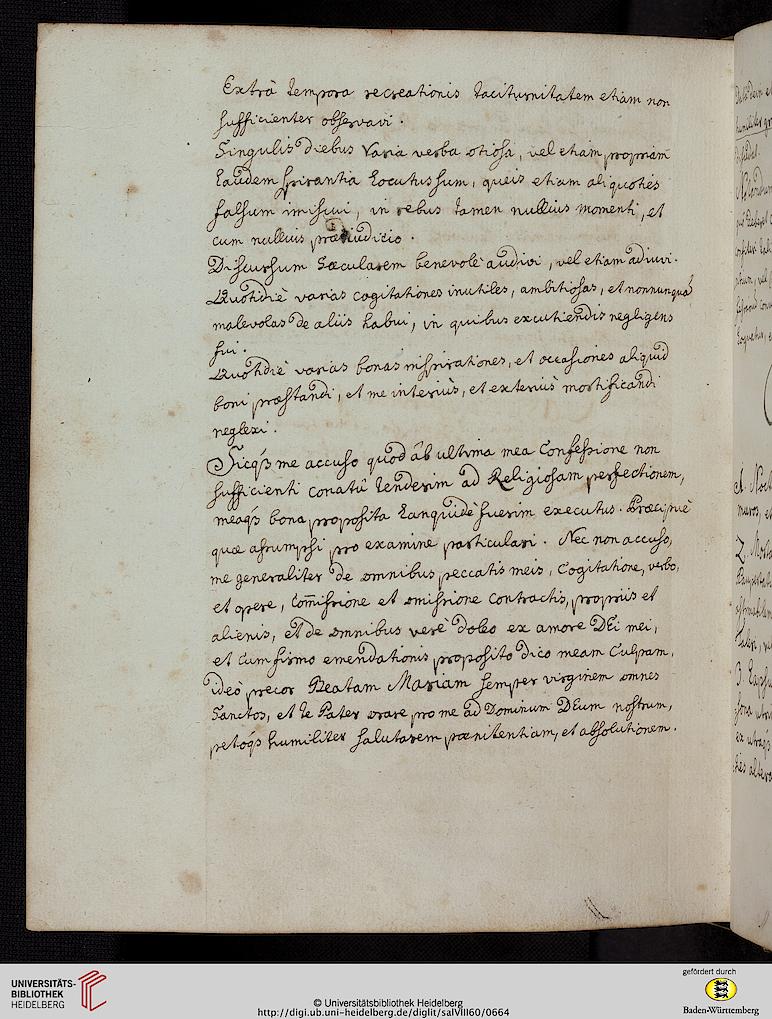 Extrà tempora recreationis taciturnitatem etiam non
sufficienter observavi.
Singulis diebus varia verba otiosa, vel etiam propriam
laudem spirantia locutus sum, queis etiam aliquoties
falsum imiscui, in rebus tamen nullius momenti, et
cum nullius præiudicio.
Discursum sæcularem benevolè audivi, vel etiam adiuvi.
Quotidiè varias cogitationes inutiles, ambitiosas, et nonnunquã
malevolas de aliis habui, in quibus excutiendis negligens
fui.
Quotidiè varias bonas inspirationes, et occasiones aliquid
boni præstandi, et me interiùs, et exteriùs mortificandi
neglexi.
Sicq₃ me accuso quod ab ultima mea Confessione non
sufficienti conatu tenderim ad Religiosam perfectionem,
meaq₃ bona proposita languidè fuerim executus. Præcipuè
quæ assumpsi pro examine particulari. Nec non accuso,
me generaliter de omnibus peccatis meis, Cogitatione, verbo,
et opere, Com̃issione et omissione contractis, propriis et
alienis, et de omnibus verè doleo ex amore DEi mei,
et cum firmo emendationis proposito dico meam Culpam,
ideò precor Beatam Mariam semper virginem omnes
Sanctos, et te Pater orare pro me ad Dominum DEum nostrum,
petoq₃ humiliter salutarem pœnitentiam, et absolutionem.
UNIVERSITÄTS-
BIBLIOTHEK
HEIDELBERG
© Universitätsbibliothek Heidelberg
http://digi.ub.uni-heidelberg.de/diglit/salVIII60/0664
gefördert durch
Baden-Württemberg